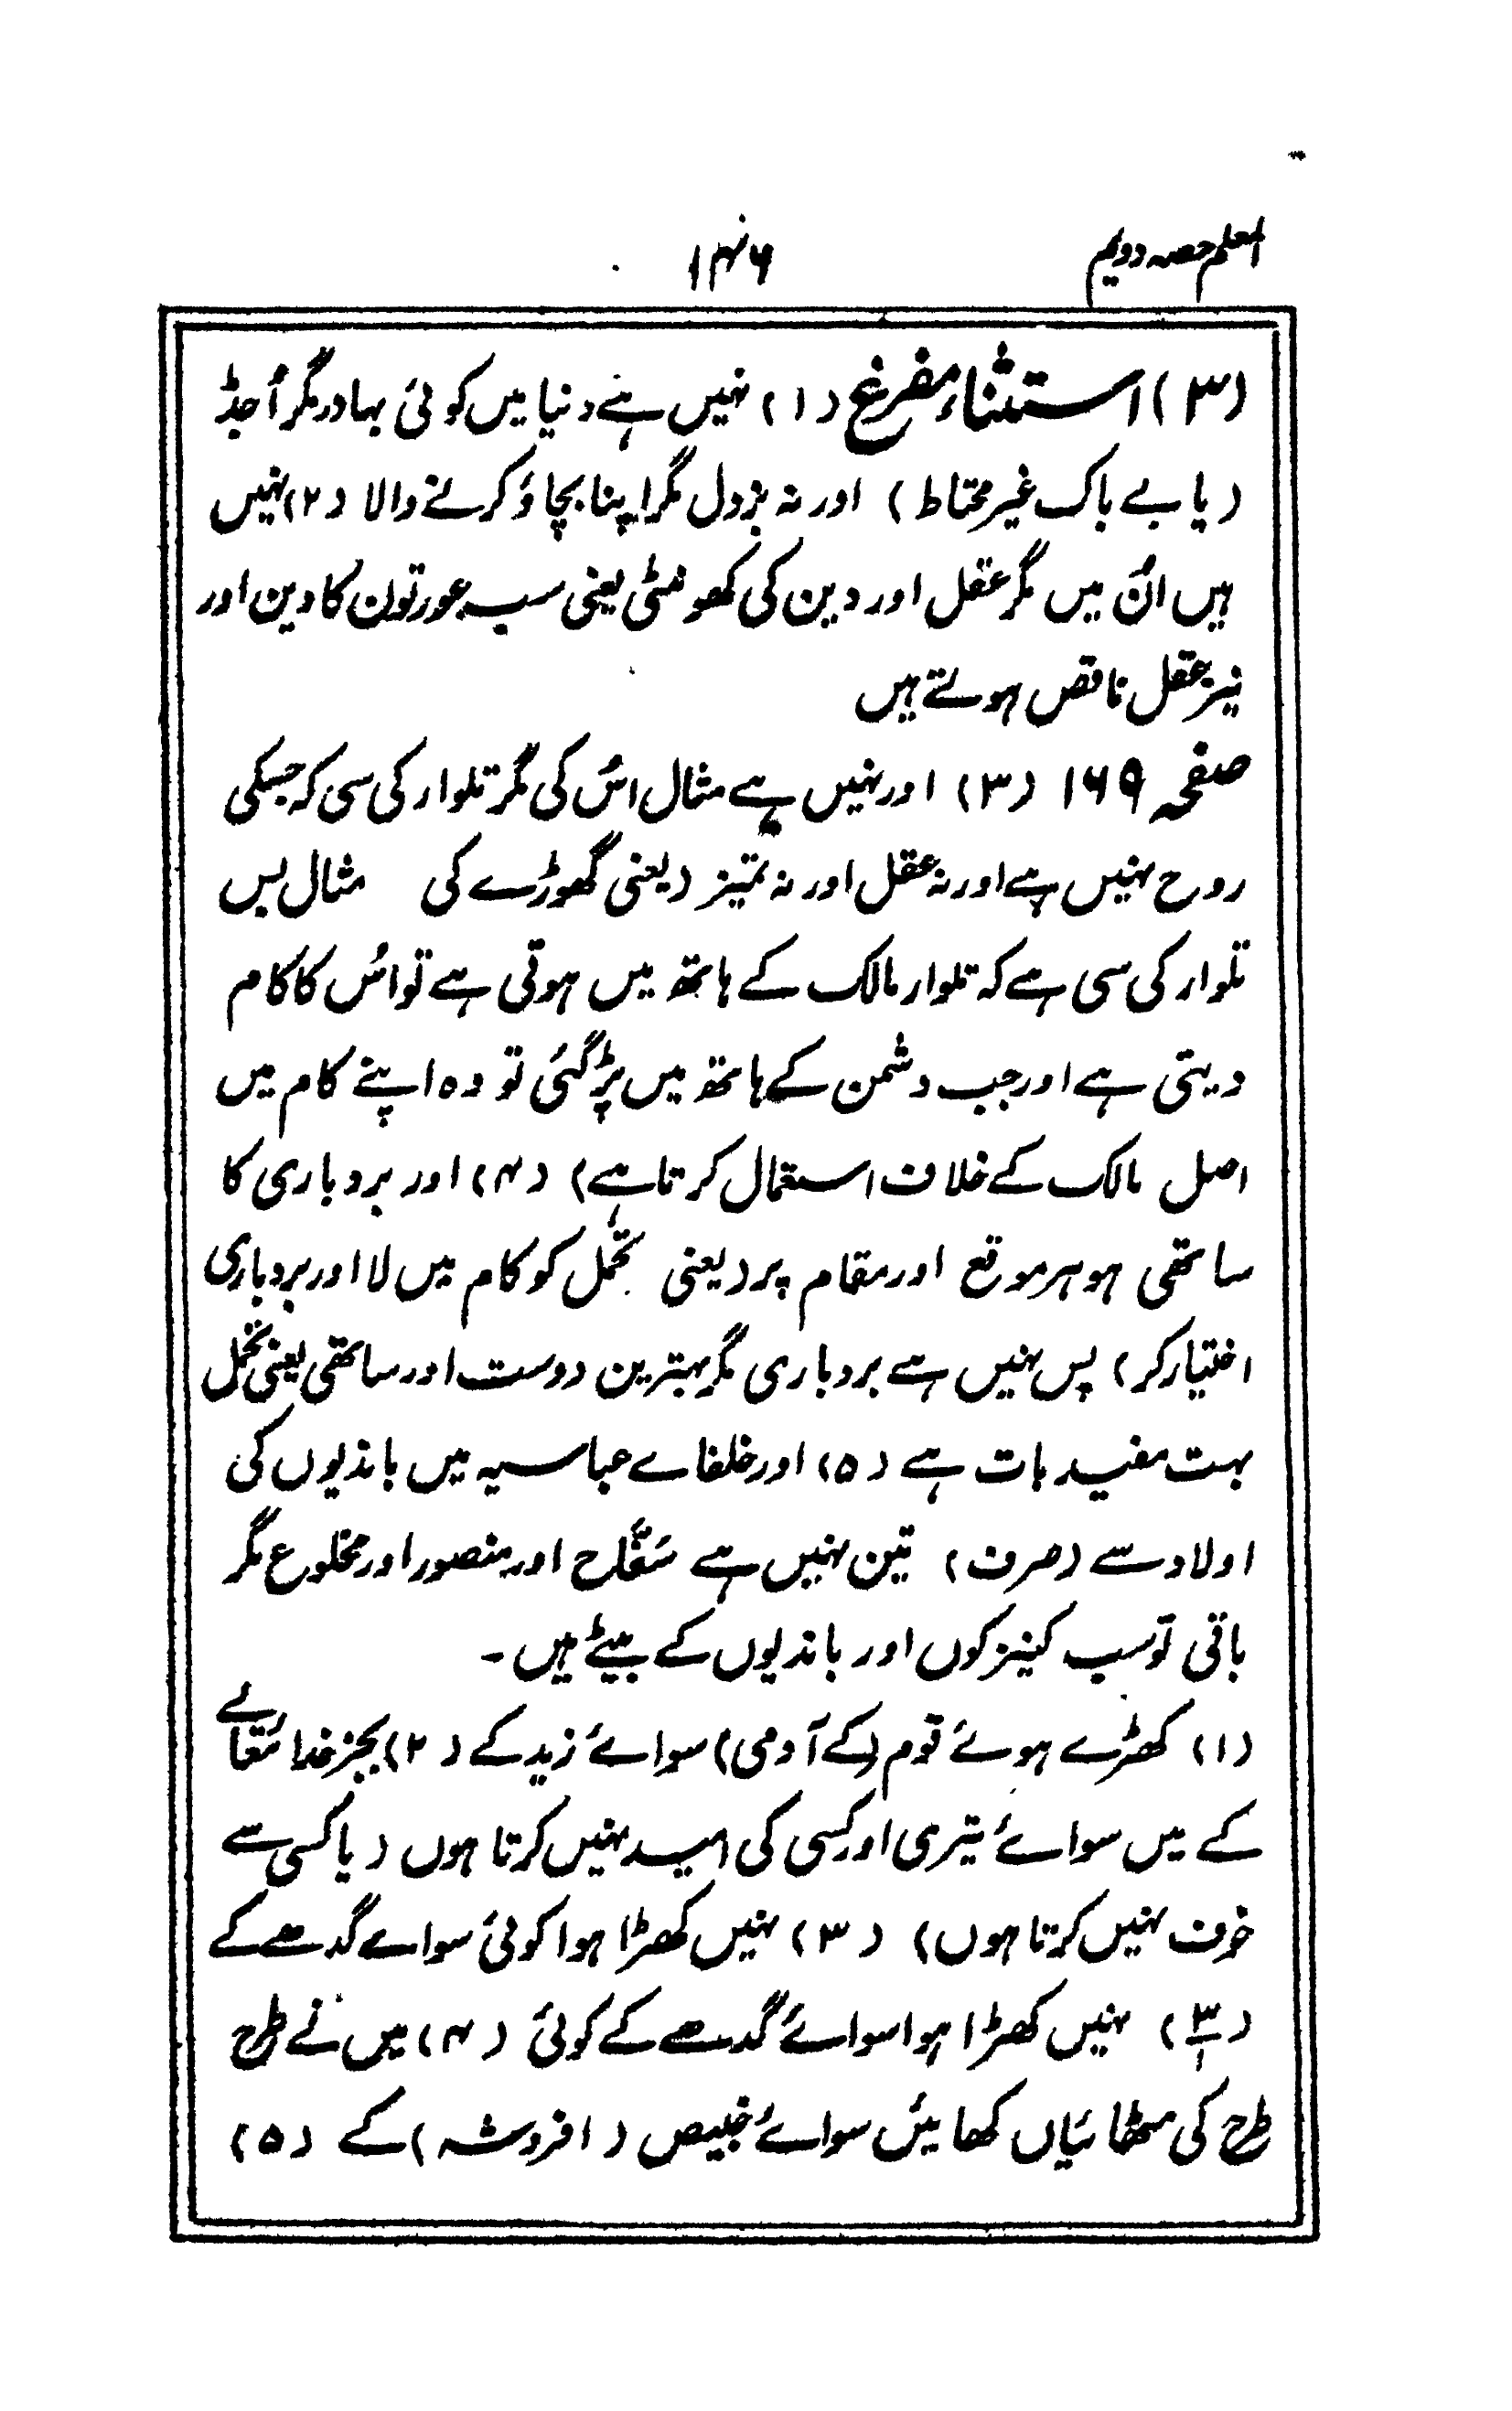 المعلم حصہ دویم
۱۴۶
(۳) استثناء مفرغ (۱) نہیں ہے دنیا میں کوئی بہادر مگر اُجڈ
(یا بے باک غیر محتاط) اور نہ بزدل مگر اپنا بچاؤ کرنے والا (۲) نہیں
ہیں اُن میں مگر عقل اور دین کی کھونٹی یعنی سب عورتوں کا دین اور
نیز عقل ناقص ہوتے ہیں
صفحہ ۱۶۹ (۳) اور نہیں ہے مثال اُس کی مگر تلوار کی سی کہ جسکی
روح نہیں ہے اور نہ عقل اور نہ تمیز (یعنی گھوڑے کی مثال بس
تلوار کی سی ہے کہ تلوار مالک کے ہاتھ میں ہوتی ہے تو اُس کا کام
دیتی ہے اور جب دشمن کے ہاتھ میں پڑ گئی تو وہ اپنے کام میں
اصل مالک کے خلاف استعمال کرتا ہے) (۴) اور بردباری کا
ساتھی ہو ہر موقع اور مقام پر (یعنی تحمّل کو کام میں لا اور بردباری
اختیار کر) پس نہیں ہے بردباری مگر بہترین دوست اور ساتھی یعنی تحمّل
بہت مفید بات ہے (۵) اور خلفاے عباسیہ میں باندیوں کی
اولاد سے (صرف) تین نہیں ہے سَفّاح اور منصور اور مخلوع مگر
باقی تو سب کنیزکوں اور باندیوں کے بیٹے ہیں ۔
(۱) کھڑے ہوئے قوم (کے آدمی) سوائے زید کے (۲) بجز خدا تعالے
کے میں سوائے تیری اور کسی کی امید نہیں کرتا ہوں (یا کسی سے
خوف نہیں کرتا ہوں) (۳) نہیں کھڑا ہوا کوئی سواے گدھے کے
(۳/۱) نہیں کھڑا ہوا سوائے گدھے کے کوئی (۴) میں نے طرح
طرح کی مٹھائیاں کھائیں سوائے خبیص (افروشہ) کے (۵)